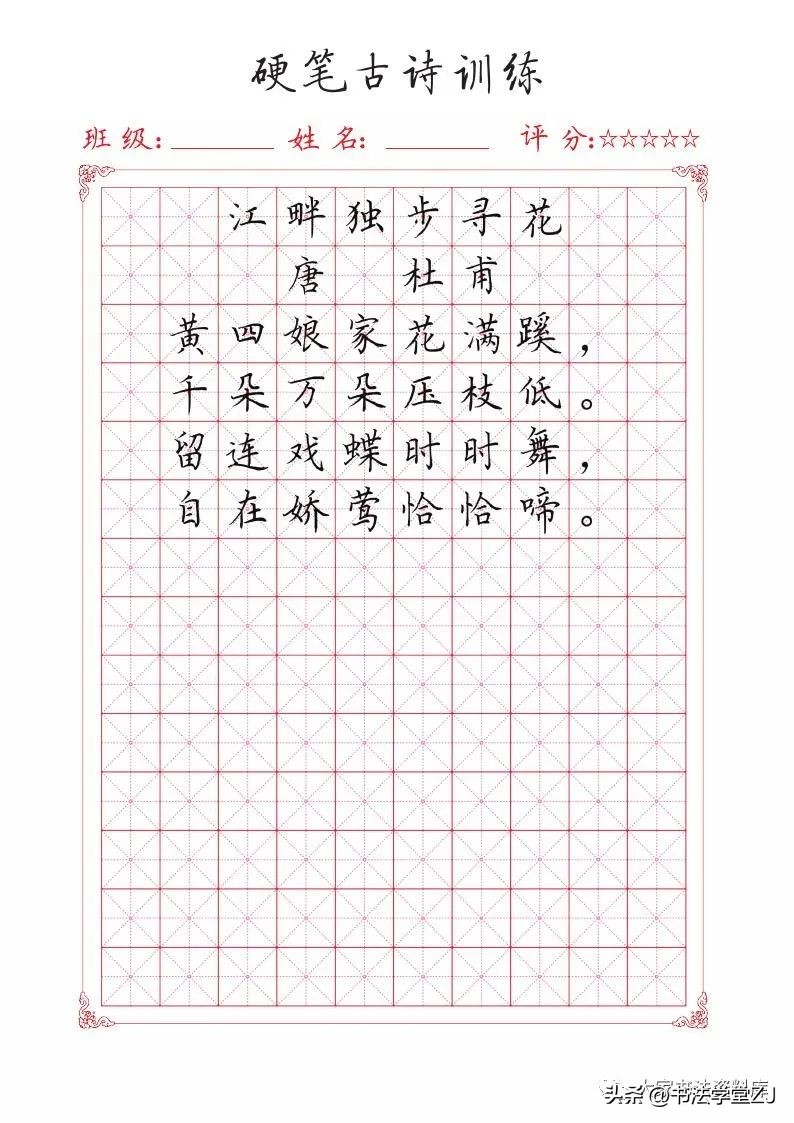 硬笔古诗训练
班级: 姓名: 评分:☆☆☆☆☆
江畔独步寻花
唐 杜甫
黄四娘家花满蹊，
千朵万朵压枝低。
留连戏蝶时时舞，
自在娇莺恰恰啼。
大家书法资料库
头条@书法学堂ZJ